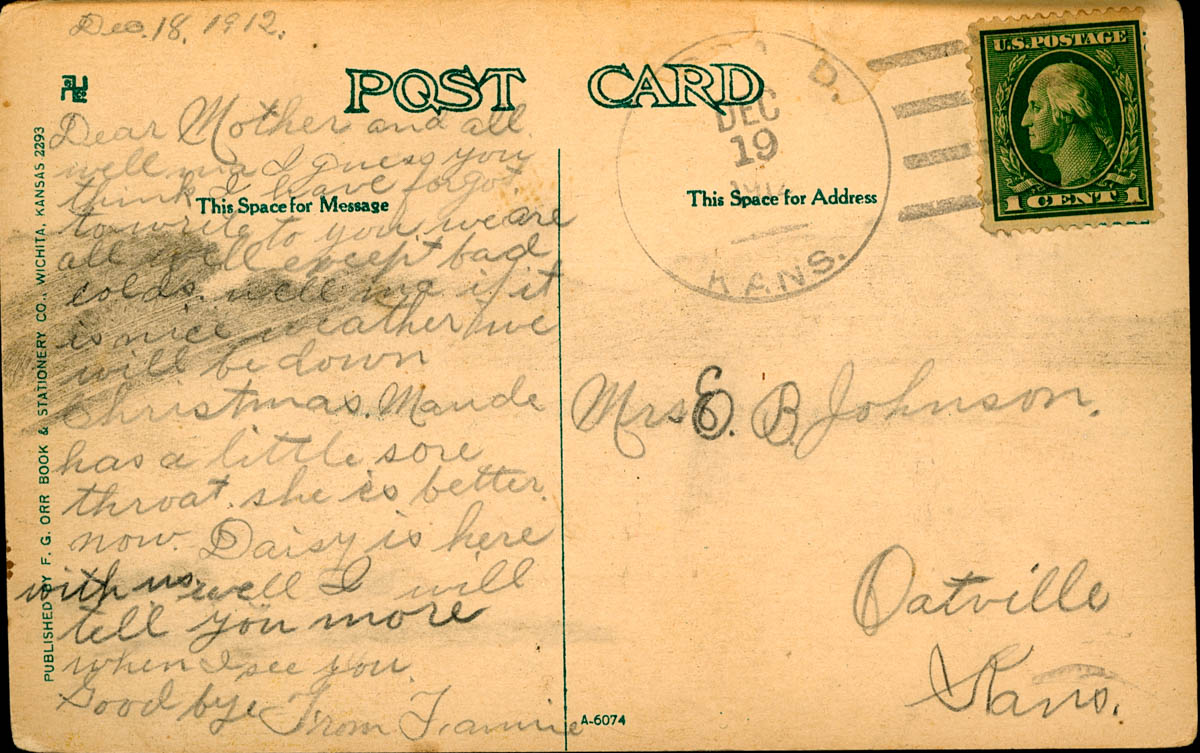 Dec. 18, 1912.
POST CARD
Dear Mother and all
well ma I guess you
think I have forgot
to write to you we are
all well except bad
colds. well ma if it
is nice weather we
will be down
Christmas. Maude
has a little sore
throat. she is better
now. Daisy is here
with us. well I will
tell you more
when I see you.
Good bye From Fannie
This Space for Message
PUBLISHED BY F. G. ORR BOOK & STATIONERY CO., WICHITA, KANSAS 2293
D.
DEC
19
KANS.
U.S. POSTAGE
1 CENT 1
This Space for Address
Mrs E. B. Johnson.
Oatville
Kans.
A-6074